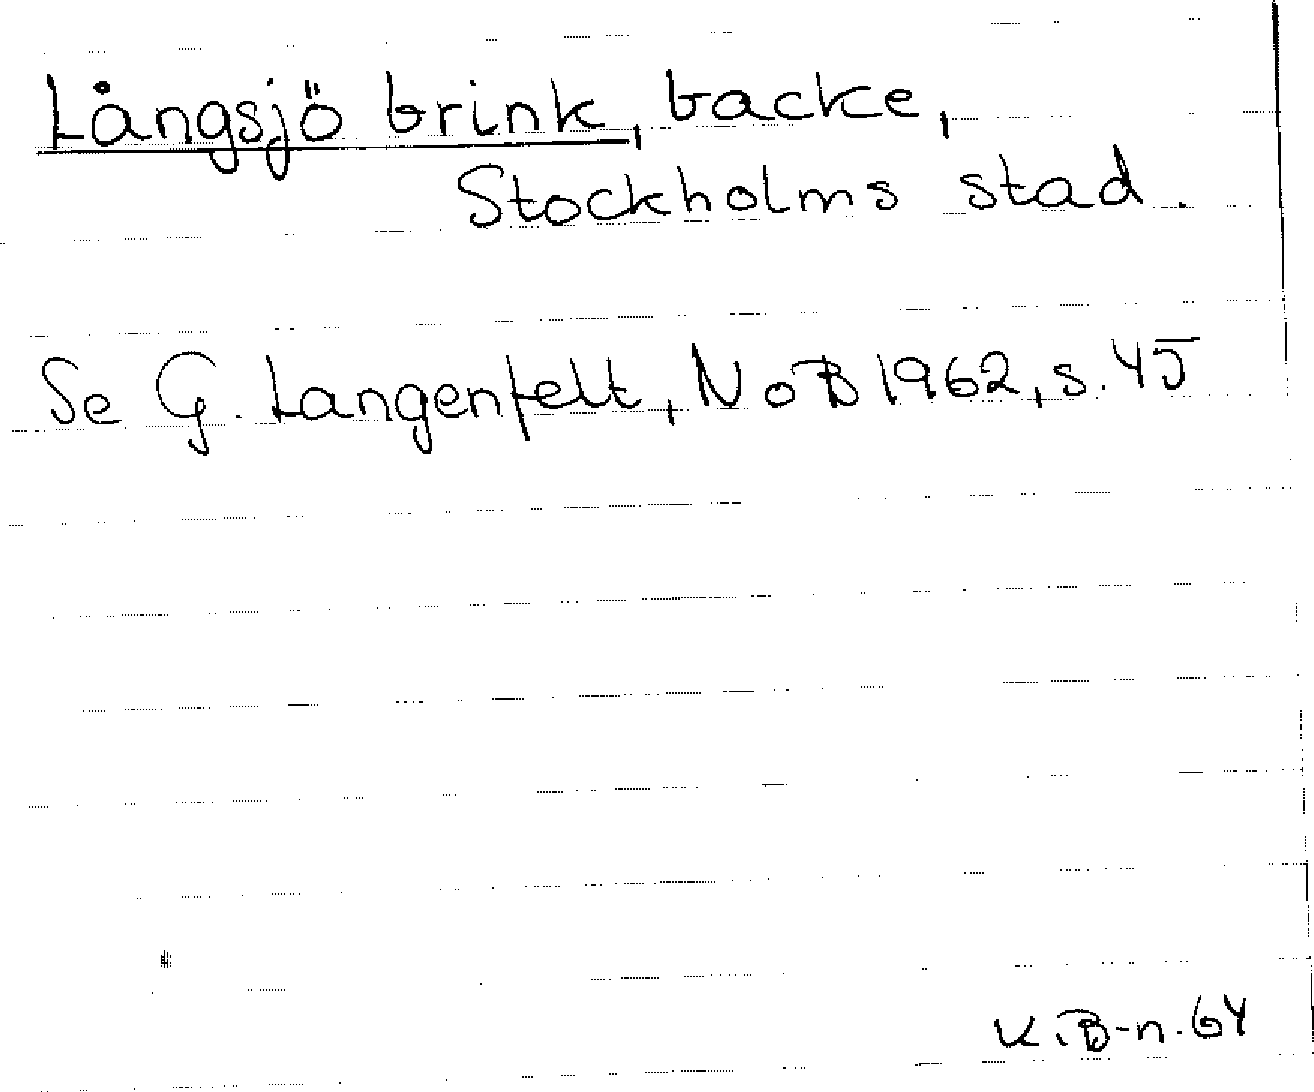 Långsjö brink, backe,
Stockholms stad.
Se G. Langenfelt, NoB 1962, s. 45
K.B-n. 64